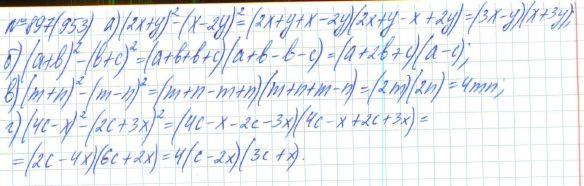 № 897(953) а) (2x+y)²-(x-2y)²=(2x+y+x-2y)(2x+y-x+2y)=(3x-y)(x+3y);
б) (a+b)²-(b+c)²=(a+b+b+c)(a+b-b-c)=(a+2b+c)(a-c);
в) (m+n)²-(m-n)²=(m+n-m+n)(m+n+m-n)=(2m)(2n)=4mn;
г) (4c-x)²-(2c+3x)²=(4c-x-2c-3x)(4c-x+2c+3x)=
=(2c-4x)(6c+2x)=4(c-2x)(3c+x).